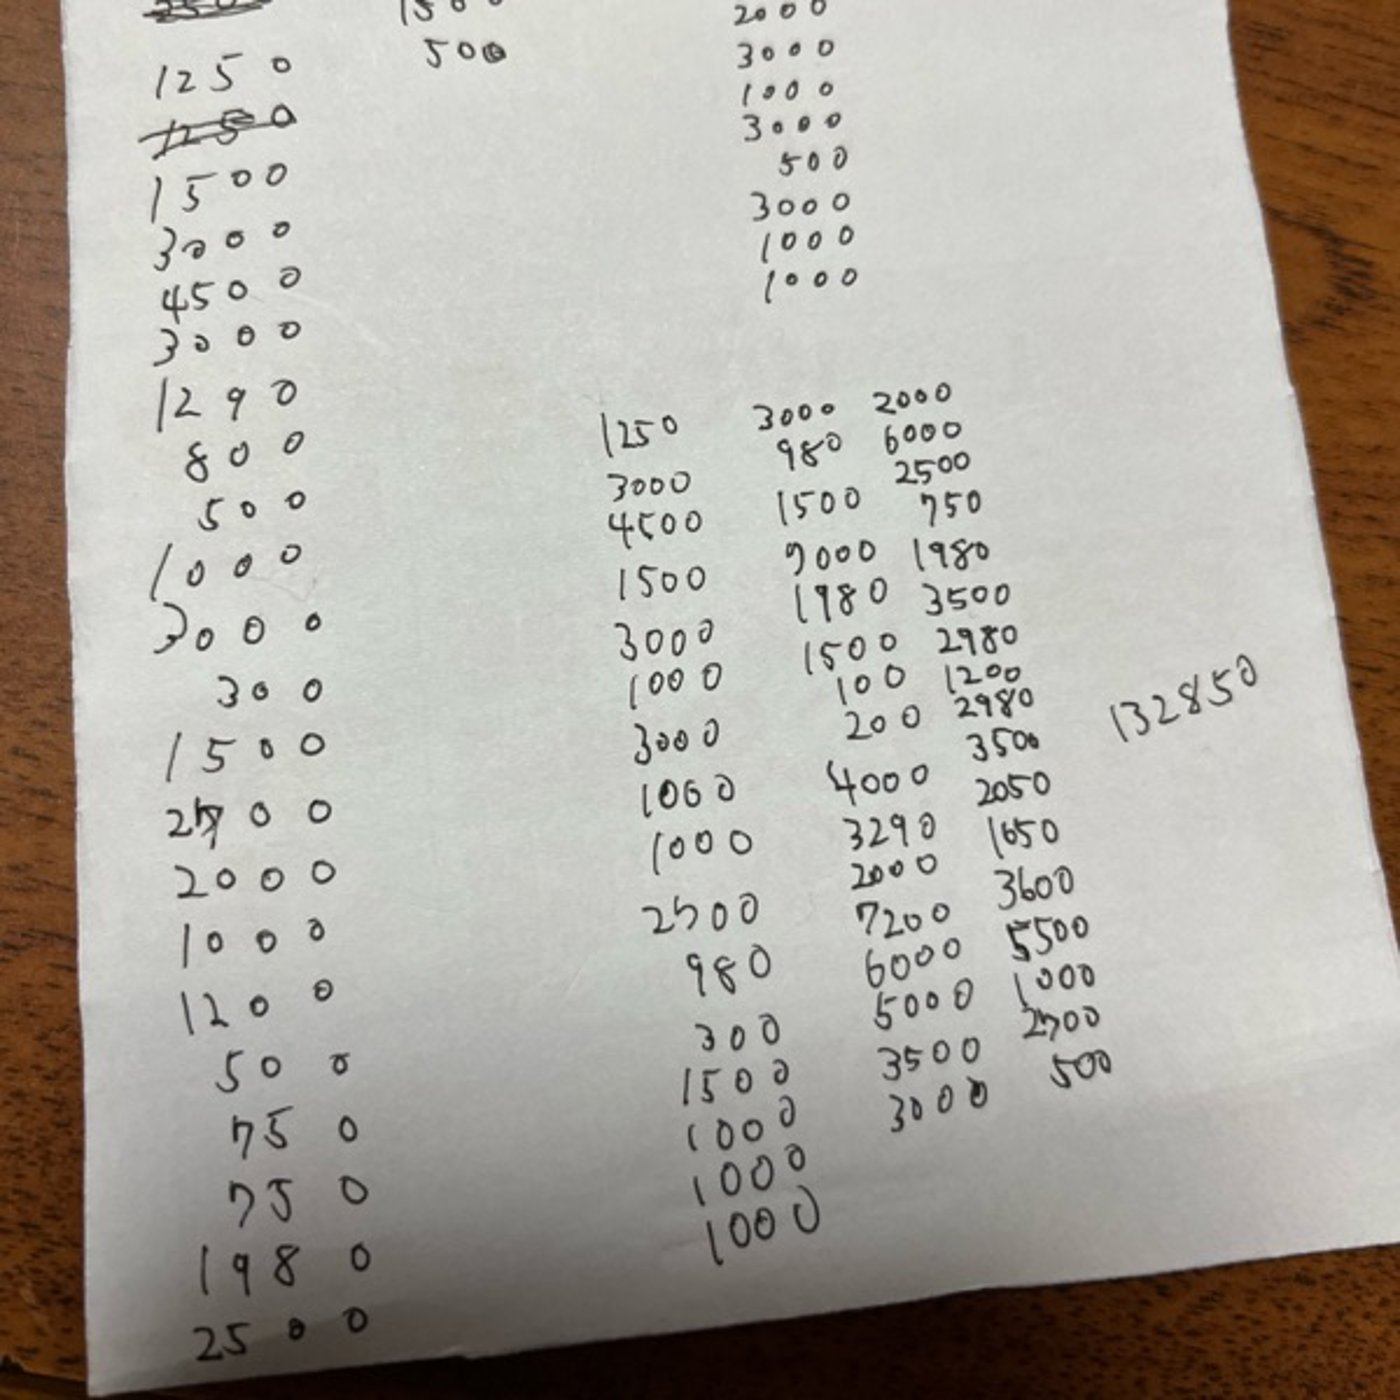 1250
1500
3000
4500
3000
1290
800
500
1000
3000
300
1500
2000
1000
1200
500
750
750
1980
2500
500
2000
3000
1000
3000
500
3000
1000
1000
1250
3000
4500
1500
3000
1000
3000
1000
1000
2500
980
300
1500
1000
1000
1000
3000
980
1500
1980
1500
100
200
4000
3290
2000
7200
6000
5000
3500
3000
2000
6000
2500
750
1980
3500
2980
1200
2980
3500
2050
1650
3600
5500
1000
500
132850